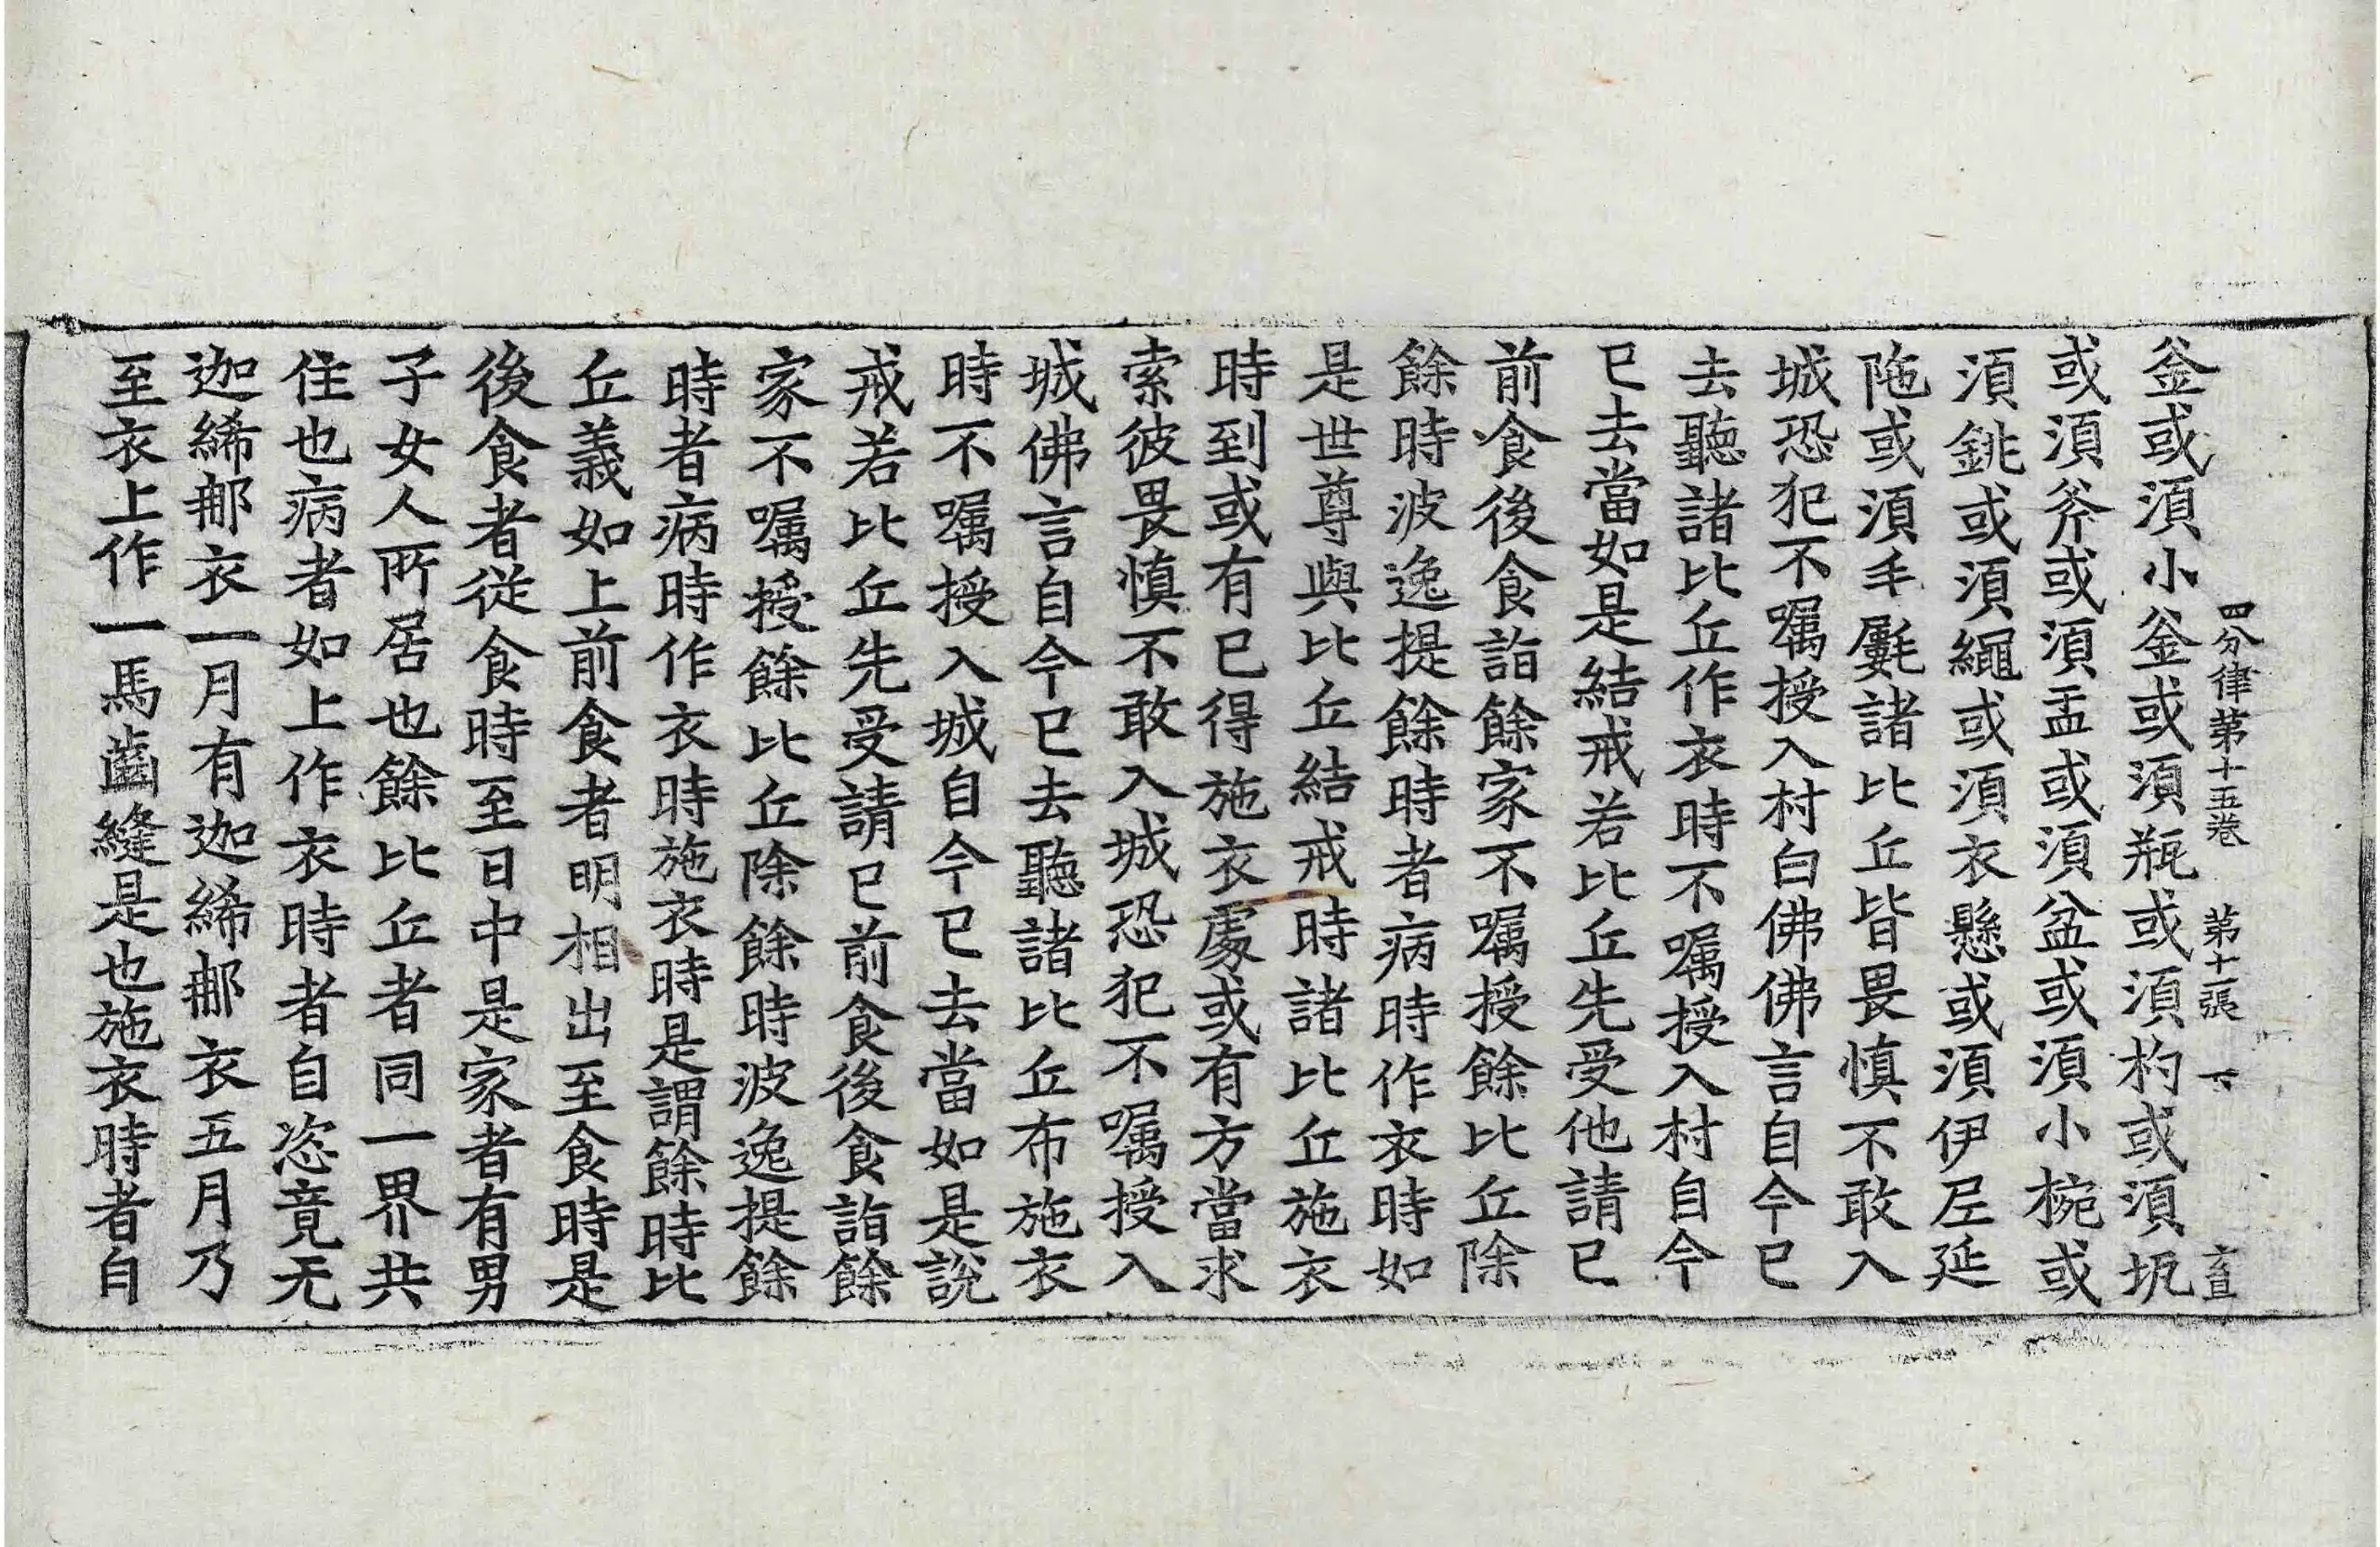 四分律第十五卷 第十二張 下 直
釜或湏小釜或湏瓶或湏杓或湏瓨
或湏斧或湏盂或湏盆或湏小椀或
湏銚或湏繩或湏衣懸或湏伊尼延
陁或湏毛㲣諸比丘皆畏慎不敢入
城恐犯不囑授入村白佛佛言自今已
去聽諸比丘作衣時不囑授入村自今
已去當如是結戒若比丘先受他請已
前食後食詣餘家不囑授餘比丘除
餘時波逸提餘時者病時作衣時如
是世尊與比丘結戒時諸比丘施衣
時到或有已得施衣處或有方當求
索彼畏慎不敢入城恐犯不囑授入
城佛言自今已去聽諸比丘布施衣
時不囑授入城自今已去當如是說
戒若比丘先受請已前食後食詣餘
家不囑授餘比丘除餘時波逸提餘
時者病時作衣時施衣時是謂餘時比
丘義如上前食者明相出至食時是
後食者從食時至日中是家者有男
子女人所居也餘比丘者同一界共
住也病者如上作衣時者自恣竟无
迦絺那衣一月有迦絺那衣五月乃
至衣上作一馬齒縫是也施衣時者自